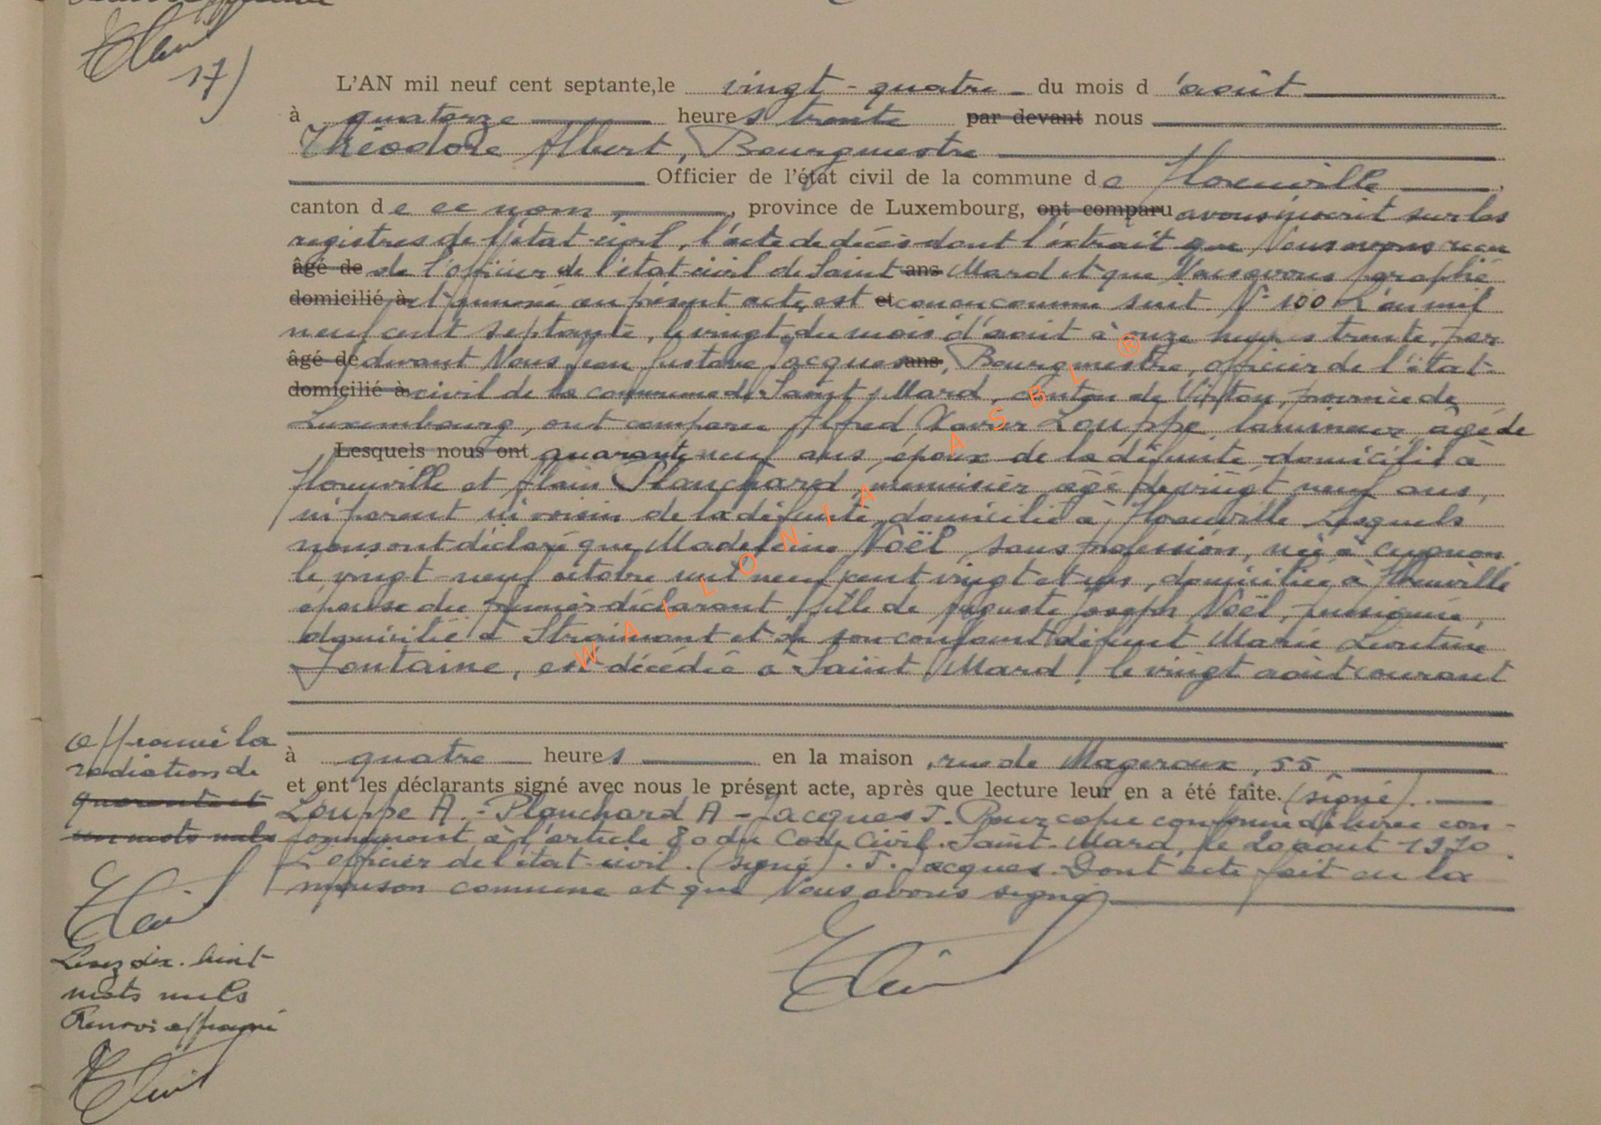 17)
L'AN mil neuf cent septante, le vingt-quatre du mois d'août
à quatorze heures trente par devant nous
Théodore Albert, Bourgmestre
Officier de l'état civil de la commune de Florenville,
canton de ce nom, province de Luxembourg, ont comparu avons inscrit sur les
registres de l'état-civil, l'acte de décès dont l'extrait que Nous avons reçu
âgé de de l'officier de l'état civil de Saint ans Mard et que Nous avons paraphé
domicilié à et annexé au présent acte, est et conçu comme suit N° 100 L'an mil
neuf cent septante, le vingt du mois d'août à onze heures trente, par
âgé de devant Nous Jean Gustave Jacques ans, Bourgmestre, officier de l'état-
domicilié à civil de la commune de Saint-Mard, canton de Virton, province de
Luxembourg, ont comparu Alfred Xavier Louppe, lamineur, âgé de
Lesquels nous ont quarante neuf ans, époux de la défunte, domicilié à
Florenville et Alain Planchard, menuisier, âgé de vingt neuf ans,
ni parent ni voisin de la défunte, domicilié à Florenville. Lesquels
nous ont déclaré que Madeleine Noël sans profession, née à Cugnon
le vingt-neuf octobre mil neuf cent vingt et un, domiciliée à Florenville
épouse du premier déclarant, fille de Auguste Joseph Noël, pensionné,
domicilié à Straimont et de son conjoint défunt Marie Léontine
Fontaine, est décédée à Saint-Mard, le vingt août courant
à quatre heures en la maison, rue de Mageroux, 55,
et ont les déclarants signé avec nous le présent acte, après que lecture leur en a été faite. (signé).
Louppe A. - Planchard A - Jacques J. Pour copie conforme délivrée con-
formément à l'article 80 du Code Civil. Saint-Mard, le 20 août 1970.
L'officier de l'état-civil. (signé). J. Jacques. Dont acte fait en la
maison commune et que Nous avons signé
Approuvé la
radiation de
quarante et
un mots nuls
Lisez dix-huit
mots nuls
Renvoi approuvé
WALLONIA ASBL ®